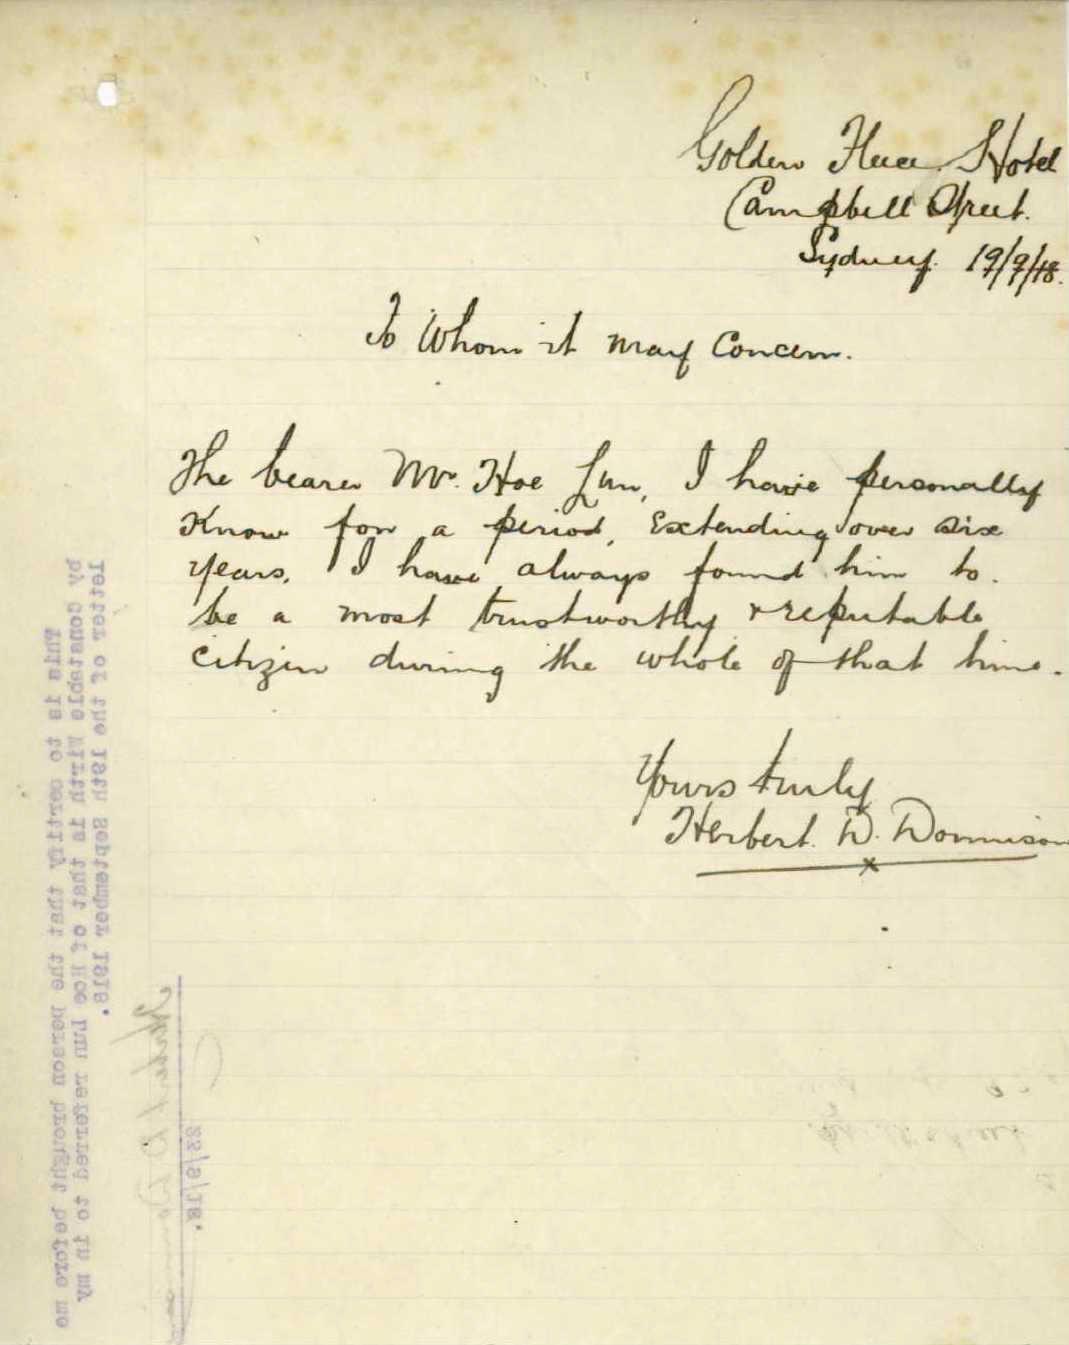 Golden Fleece Hotel
Campbell Street.
Sydney. 19/9/18.
To Whom it may Concern.
The bearer Mr. Hoe Lun, I have personally
Know for a period, Extending over six
years, I have always found him to.
be a most trustworthy & reputable
citizen during the whole of that time.
Yours truly
Herbert. D. Donnison
x
This is to certify that the person brought before me
by Constable Wirth is that of Hoe Lun referred to in my
letter of the 19th September 1918.
Herbert D Donnison
23/9/18.